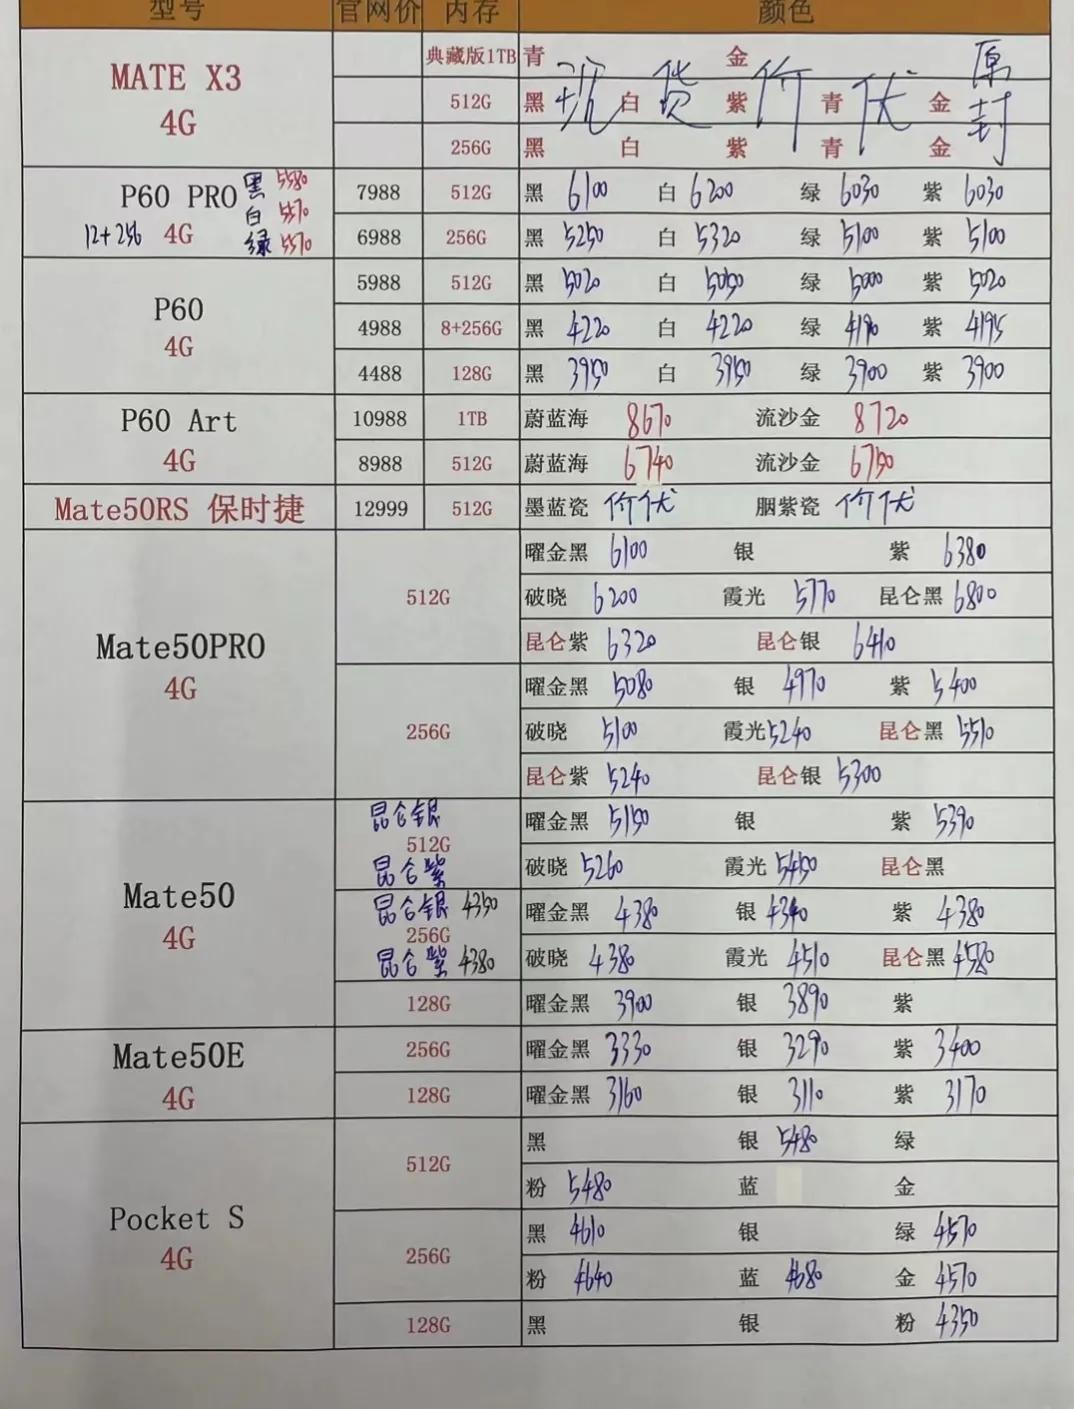 型号 官网价 内存 颜色
MATE X3 4G
典藏版1TB 青 金
512G 黑 白 紫 青 金
256G 黑 白 紫 青 金
现货价优 原封
P60 PRO 4G 12+256 黑 5580 白 5570 绿 5570
7988 512G 黑 6100 白 6200 绿 6030 紫 6030
6988 256G 黑 5250 白 5320 绿 5100 紫 5100
P60 4G
5988 512G 黑 5020 白 5050 绿 5000 紫 5020
4988 8+256G 黑 4220 白 4220 绿 4190 紫 4195
4488 128G 黑 3950 白 3950 绿 3900 紫 3900
P60 Art 4G
10988 1TB 蔚蓝海 8670 流沙金 8720
8988 512G 蔚蓝海 6740 流沙金 6750
Mate50RS 保时捷 12999 512G 墨蓝瓷 价优 胭紫瓷 价优
Mate50PRO 4G
512G 曜金黑 6100 银 紫 6380
破晓 6200 霞光 5770 昆仑黑 6800
昆仑紫 6320 昆仑银 6410
256G 曜金黑 5080 银 4970 紫 5400
破晓 5100 霞光 5240 昆仑黑 5510
昆仑紫 5240 昆仑银 5300
Mate50 4G
昆仑银 512G 昆仑紫
曜金黑 5150 银 紫 5390
破晓 5260 霞光 5450 昆仑黑
昆仑银 4350 256G 昆仑紫 4380
曜金黑 4380 银 紫 4380
破晓 4380 霞光 4510 昆仑黑 4580
128G 曜金黑 3900 银 3890 紫
Mate50E 4G
256G 曜金黑 3330 银 3290 紫 3400
128G 曜金黑 3160 银 3110 紫 3170
Pocket S 4G
512G 黑 银 5480 绿
粉 5480 蓝 金
256G 黑 4610 银 绿 4570
粉 4640 蓝 4680 金 4570
128G 黑 银 粉 4350